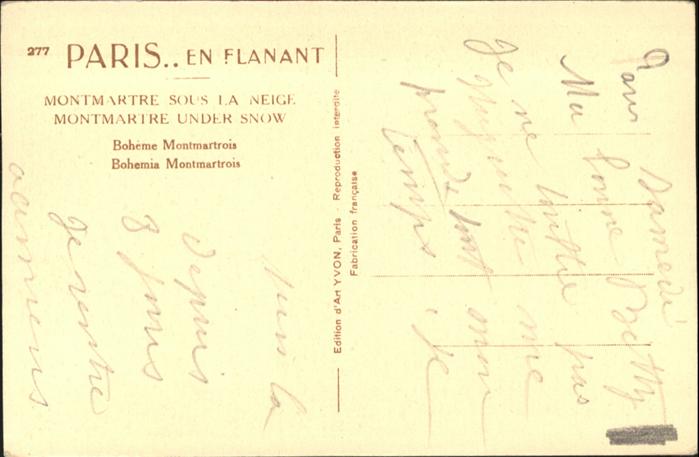 277 PARIS.. EN FLANANT
MONTMARTRE SOUS LA NEIGE
MONTMARTRE UNDER SNOW
Bohème Montmartrois
Bohemia Montmartrois
Edition d'Art YVON, Paris - Reproduction interdite
Fabrication française
Paris Samedi
Ma bonne Betty
Je ne oublie pas
Mignette me
prends tout mon
temps. Je
suis là
depuis
8 jours
Je rentre